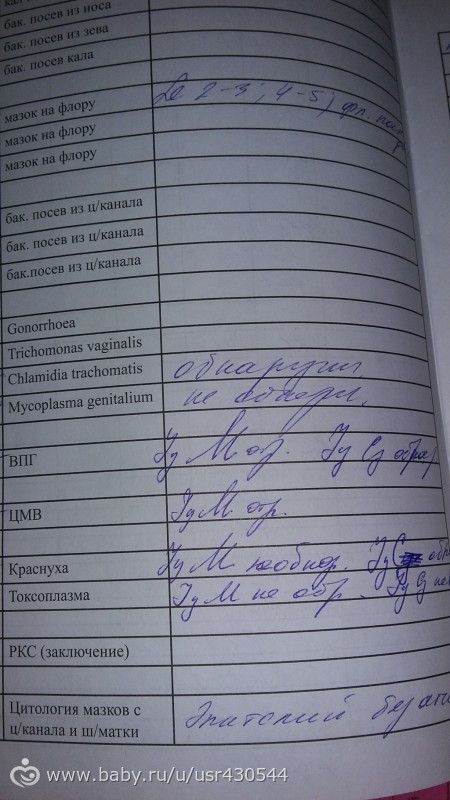 бак. посев из носа
бак. посев из зева
бак. посев кала
мазок на флору Le 2-3; 4-5; фл.
мазок на флору
мазок на флору
бак. посев из ц/канала
бак. посев из ц/канала
бак.посев из ц/канала
Gonorrhoea
Trichomonas vaginalis
Chlamidia trachomatis обнаружен
Mycoplasma genitalium не обнаруж.
ВПГ Ig M отр. Ig G
ЦМВ Ig M отр.
Краснуха Ig M необнар. Ig G
Токсоплазма Ig M не обр. Ig G не
РКС (заключение)
Цитология мазков с
ц/канала и ш/матки Эпителий без
www.baby.ru/u/usr430544